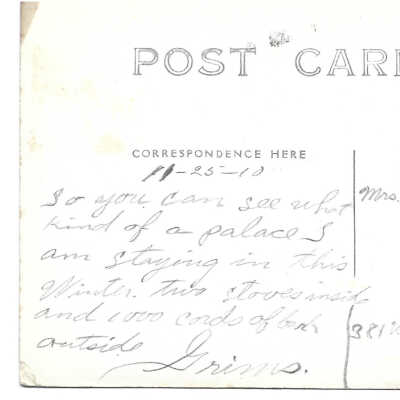 POST CAR
CORRESPONDENCE HERE
11-25-10
So you can see what
Kind of a palace I
am staying in this
Winter. two stoves inside
and 1000 cords of bark
outside
Grims.
Mrs.
381